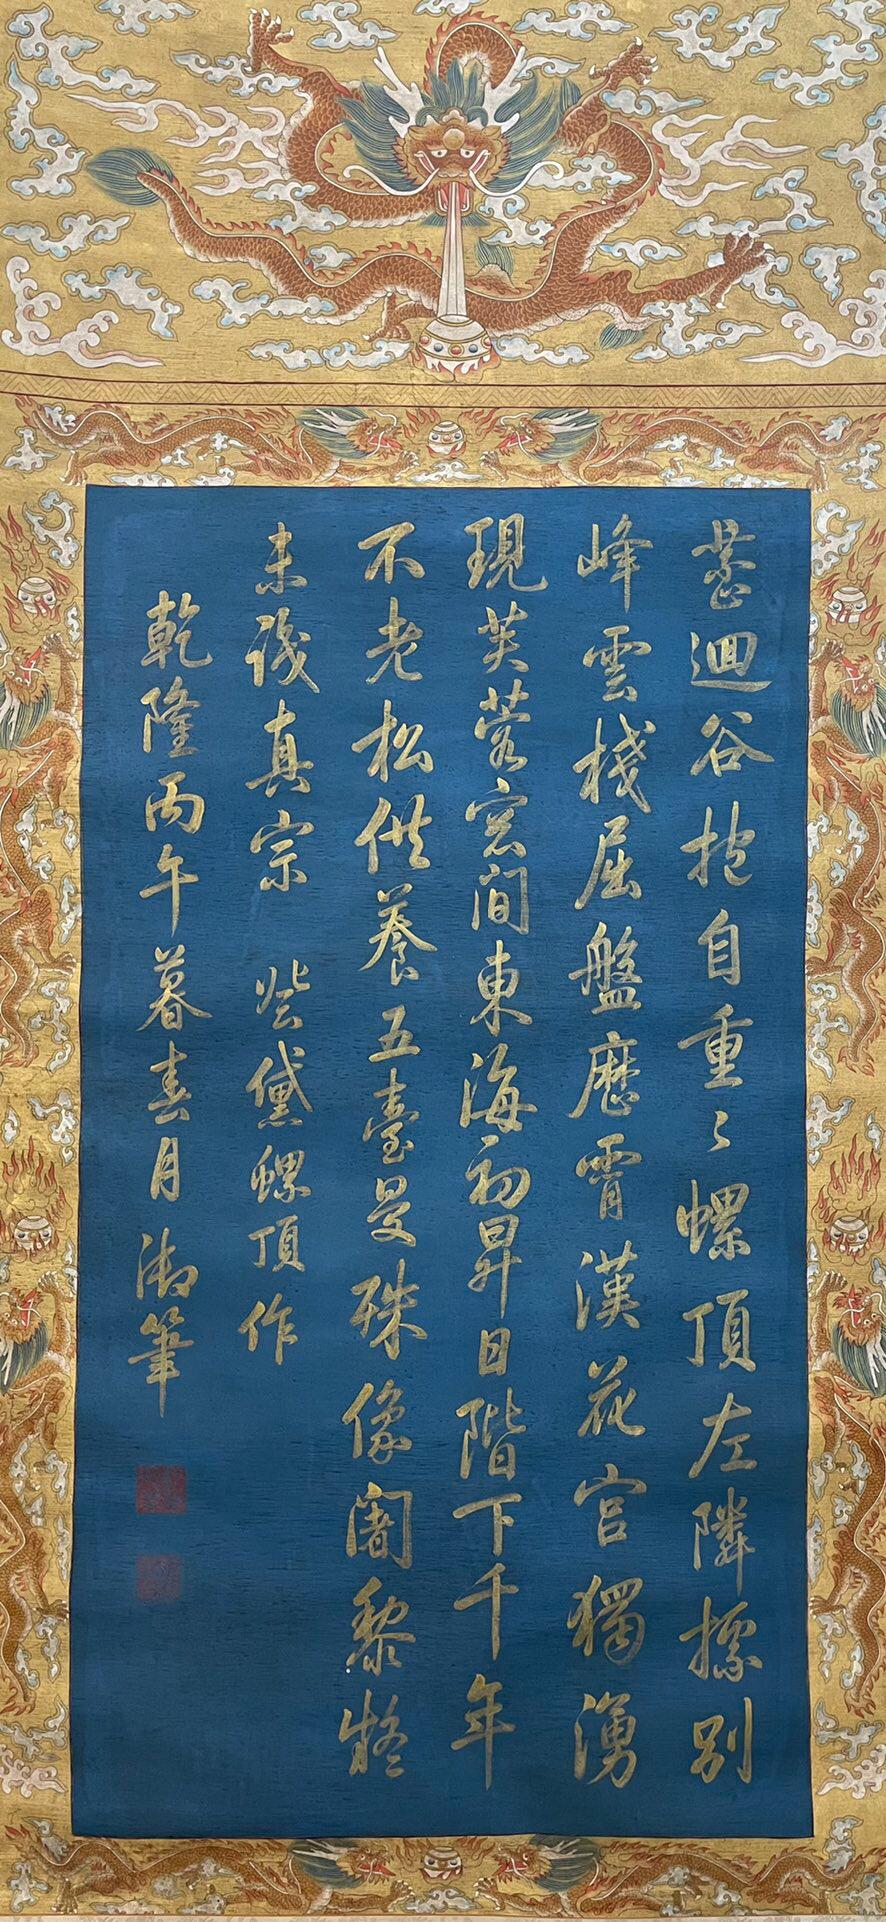 蔥迴谷抱自重〻螺頂左隣標別
峰雲棧屈盤歷霄漢花宮獨湧
現芙蓉窓間東海初昇日階下千年
不老松供養五臺曼殊像闍黎
未識真宗　登黛螺頂作
乾隆丙午暮春月御筆